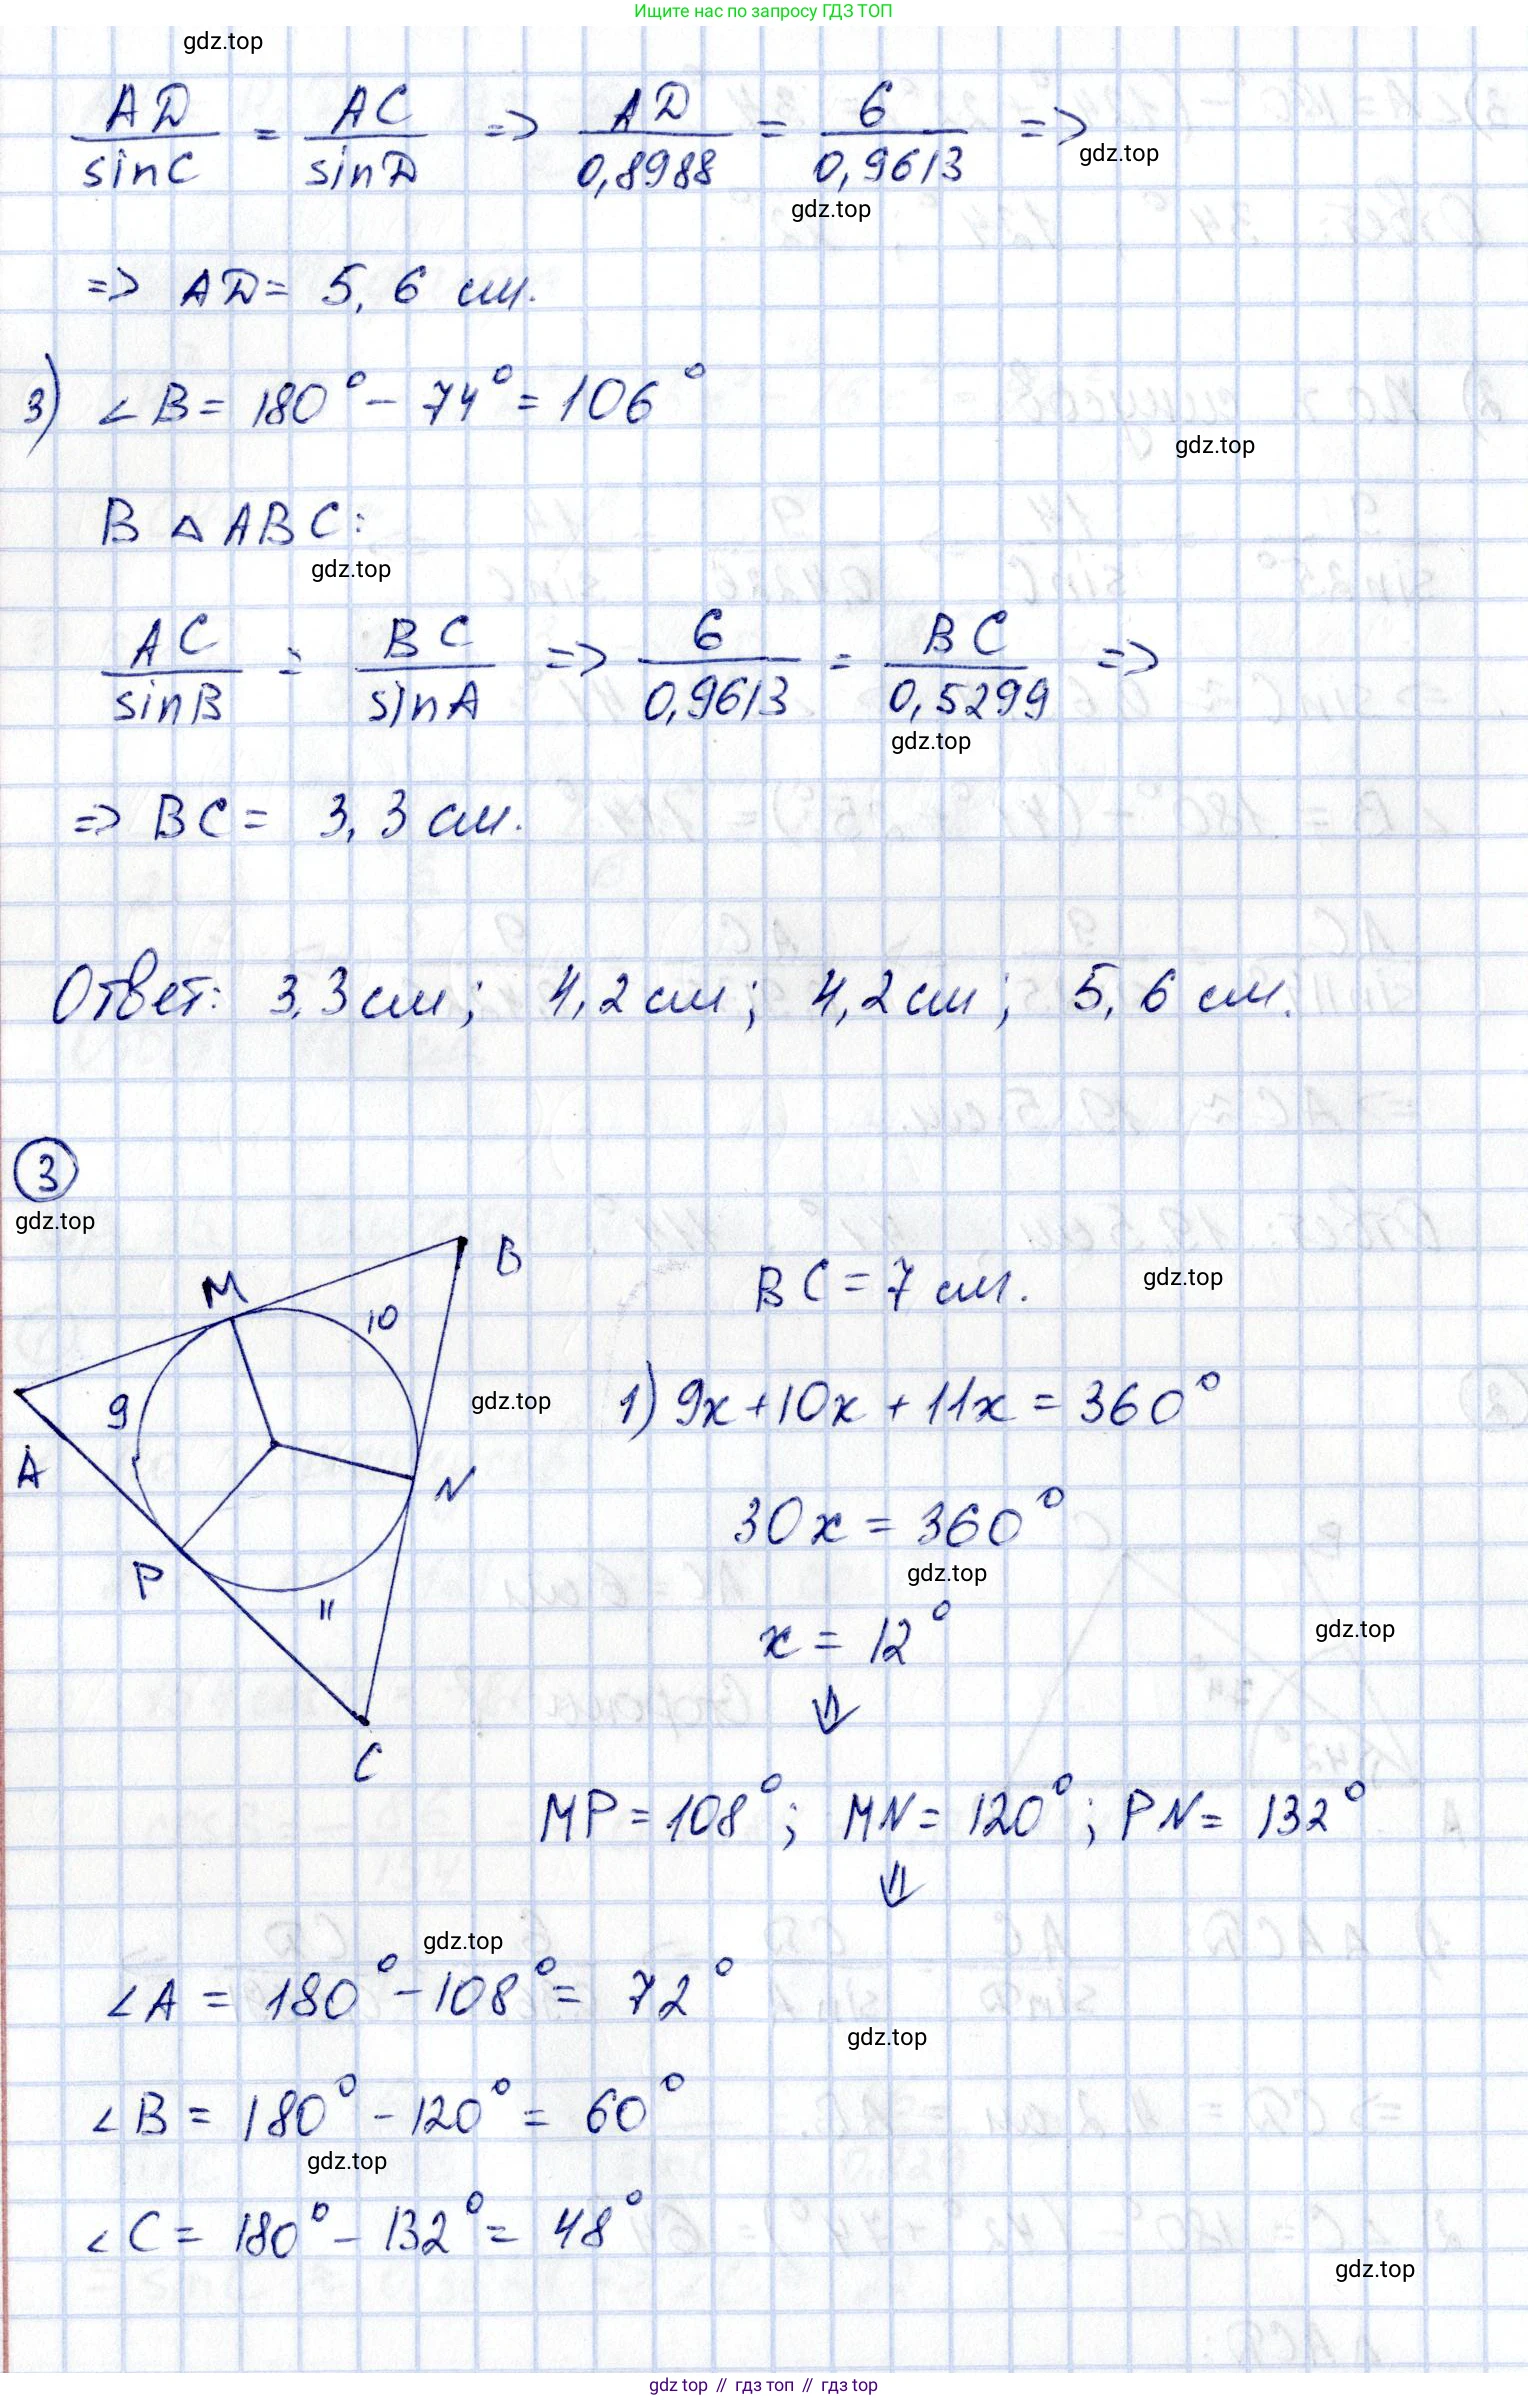 Ищите нас по запросу ГДЗ ТОП
gdz.top
AD/sinC = AC/sinD => AD/0,8988 = 6/0,9613 =>
gdz.top
gdz.top
=> AD = 5,6 см.
3) ∠B = 180° - 74° = 106°
gdz.top
В △ABC:
gdz.top
AC/sinB = BC/sinA => 6/0,9613 = BC/0,5299 =>
gdz.top
=> BC = 3,3 см.
Ответ: 3,3 см; 4,2 см; 4,2 см; 5,6 см.
3
gdz.top
B
M
10
BC = 7 см.
gdz.top
9
gdz.top
1) 9x + 10x + 11x = 360°
A
N
30x = 360°
gdz.top
P
11
x = 12°
gdz.top
⇓
C
MP = 108°; MN = 120°; PN = 132°
⇓
gdz.top
∠A = 180° - 108° = 72°
gdz.top
∠B = 180° - 120° = 60°
gdz.top
∠C = 180° - 132° = 48°
gdz.top
gdz.top // гдз топ // гдз top